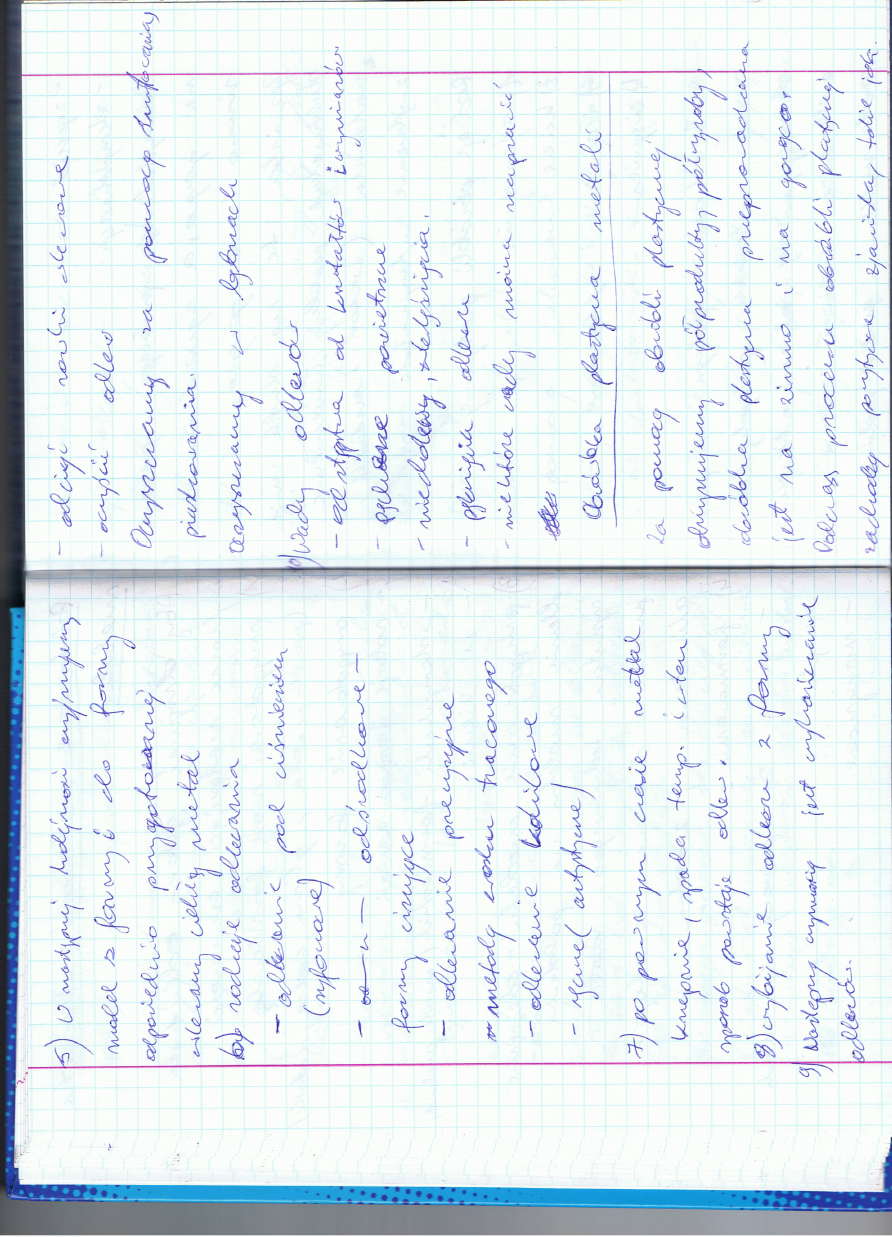 5) W następnej kolejności wyjmujemy
model z formy i do formy
odpowiednio przygotowanej
wlewamy ciekły metal
6) rodzaje odlewania
- odlewanie pod ciśnieniem
(syfonowe)
- —— odśrodkowe —
formy wirujące
- odlewanie precyzyjne
- metody wosku traconego
- odlewanie kokilowe
- (artystyczne)
7) po pewnym czasie metal
krzepnie, spada temp. i w ten
sposób powstaje odlew.
8) wybijanie odlewu z formy
9) Następną czynnością jest wykańczanie
odlewów.
- odciąć wlewowe
- oczyścić odlew
Oczyszczamy za pomocą
piaskowania.
Oczyszczamy w bębnach
10) Wady odlewów
- odstępstwa od kształtów i wymiarów
- pęcherze powietrzne
- niedolewy,
- pęknięcia odlewu
- niektóre wady można naprawić
Obróbka plastyczna metali
Za pomocą obróbki plastycznej
otrzymujemy półprodukty, półwyroby,
obróbka plastyczna przeprowadzana
jest na zimno i na gorąco.
Podczas procesu obróbki plastycznej
zachodzą pozytywne zjawiska, takie jak: